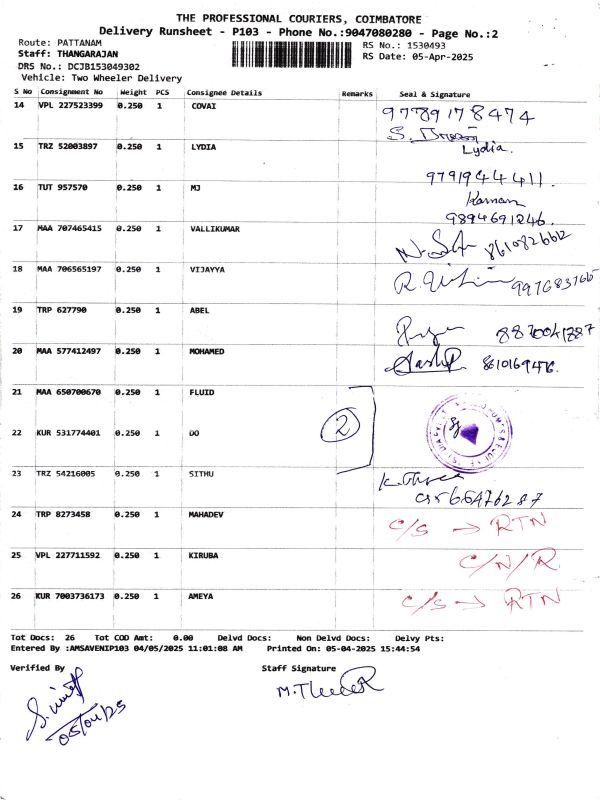 THE PROFESSIONAL COURIERS, COIMBATORE
Delivery Runsheet - P103 - Phone No.:9047080280 - Page No.:2
Route: PATTANAM RS No.: 1530493
Staff: THANGARAJAN RS Date: 05-Apr-2025
DRS No.: DCJB153049302
Vehicle: Two Wheeler Delivery
S No Consignment No Weight PCS Consignee Details Remarks Seal & Signature
14 VPL 227523399 0.250 1 COVAI 9778917 8474
15 TRZ 52003897 0.250 1 LYDIA Lydia.
9791944411.
16 TUT 957570 0.250 1 MJ
9894691246.
17 MAA 707465415 0.250 1 VALLIKUMAR 8610826612
18 MAA 706565197 0.250 1 VIJAYYA
19 TRP 627790 0.250 1 ABEL 8870041787
20 MAA 577412497 0.250 1 MOHAMED
21 MAA 650700670 0.250 1 FLUID
22 KUR 531774401 0.250 1 DO 2
23 TRZ 54216005 0.250 1 SITHU
24 TRP 8273458 0.250 1 MAHADEV C/S → RTN
25 VPL 227711592 0.250 1 KIRUBA C/N/R
26 KUR 7003736173 0.250 1 AMEYA C/S → RTN
Tot Docs: 26 Tot COD Amt: 0.00 Delvd Docs: Non Delvd Docs: Delvy Pts:
Entered By :AMSAVENIP103 04/05/2025 11:01:08 AM Printed On: 05-04-2025 15:44:54
Verified By Staff Signature
05/04/25